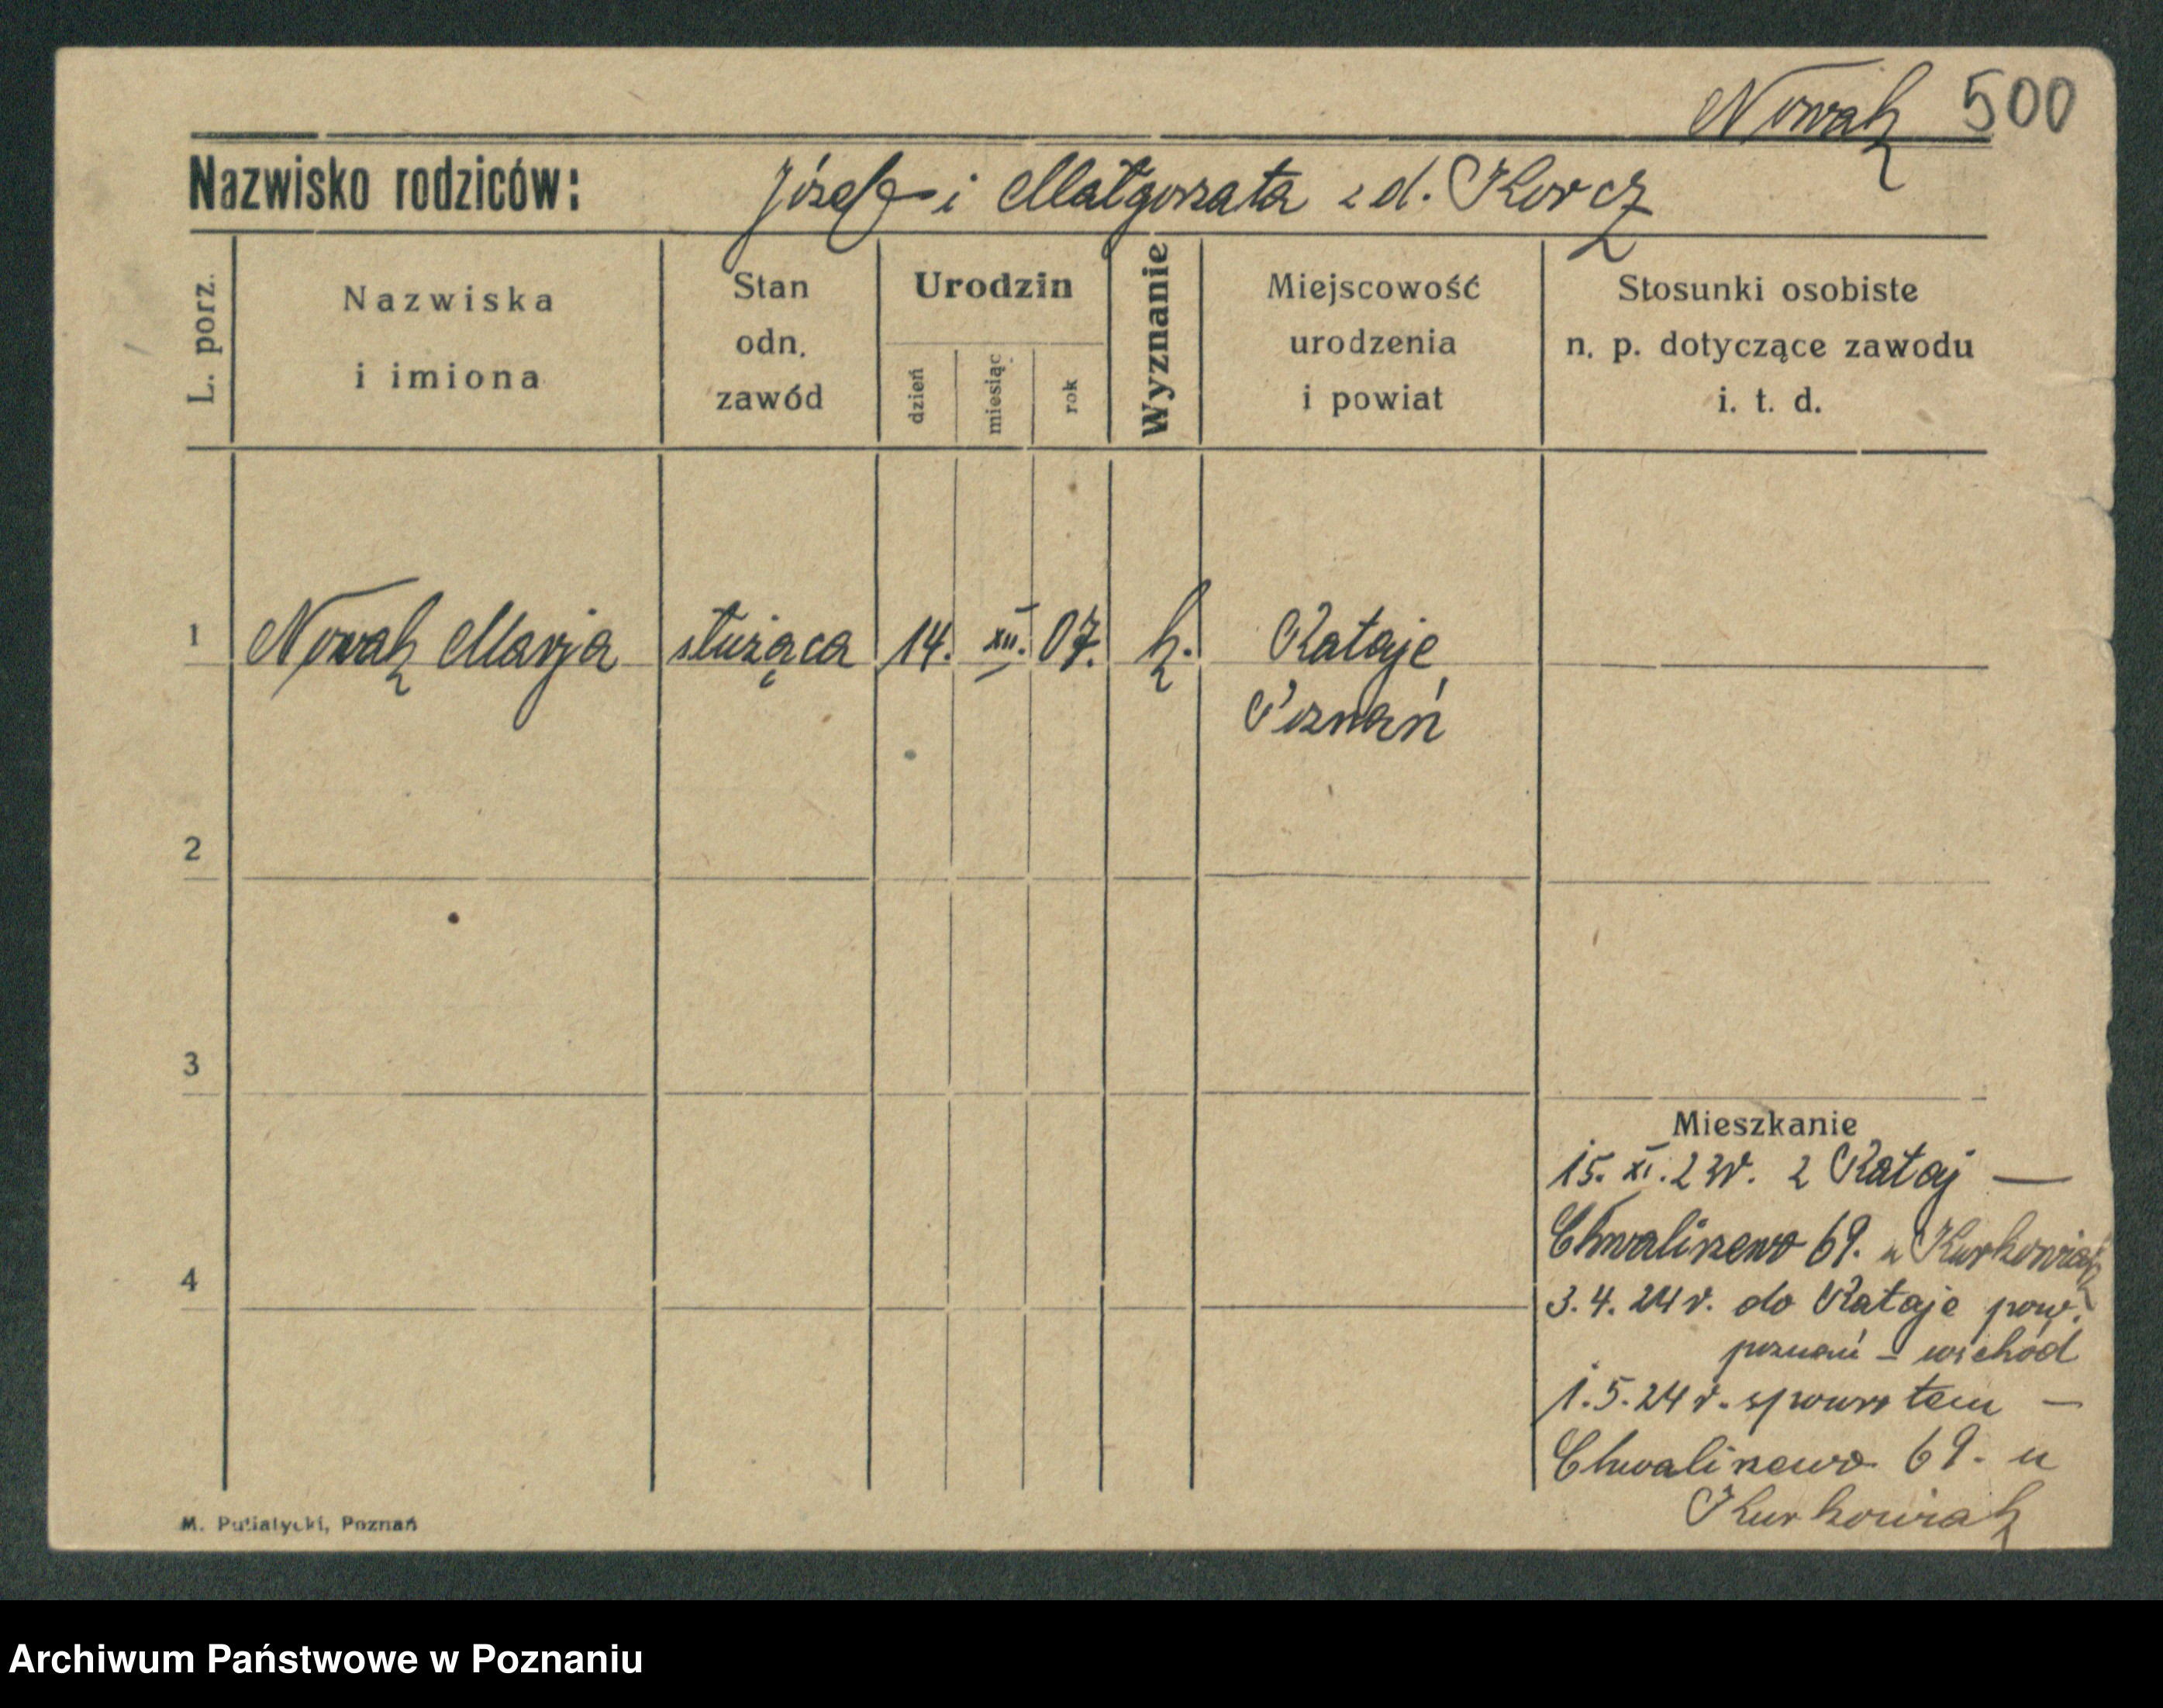 Nowak 500
Nazwisko rodziców: Józef i Małgorzata z d. Korcz
L. porz.
Nazwiska
i imiona
Stan
odn.
zawód
Urodzin
dzień
miesiąc
rok
Wyznanie
Miejscowość
urodzenia
i powiat
Stosunki osobiste
n. p. dotyczące zawodu
i. t. d.
1 Nowak Marja służąca 14. XII. 07. k. Rataje,
Poznań
2
3
4
Mieszkanie
15. XI. 23r. z Rataj —
Chwaliszewo 69. u Kurkowiak
3.4.24 r. do Rataje pow.
poznań – wschód
1.5.24 r. spowrotem –
Chwaliszewo 69. u
Kurkowiak
M. Putiatycki, Poznań
Archiwum Państwowe w Poznaniu